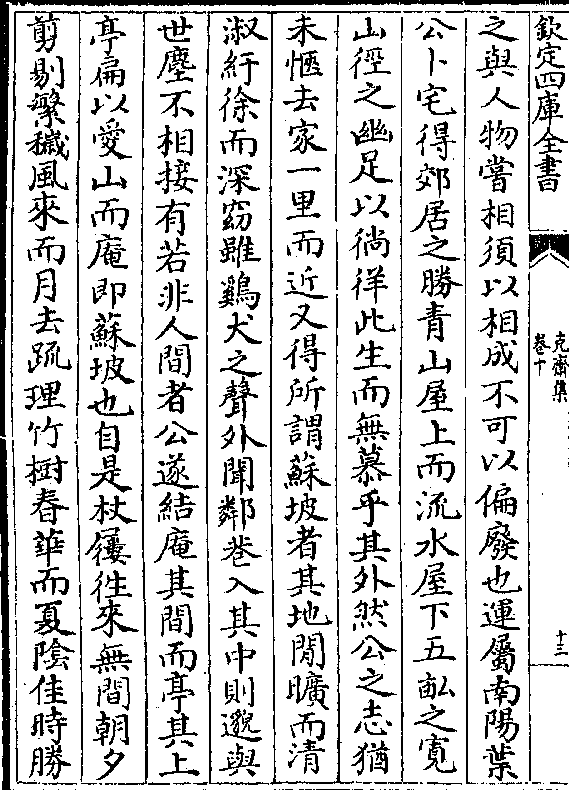 欽定四庫全書
克齋集
卷十
十三
之與人物嘗相須以相成不可以偏廢也運屬南陽葉
公卜宅得郊居之勝青山屋上而流水屋下五畝之寛
山徑之幽足以徜徉此生而無慕乎其外然公之志猶
未愜去家一里而近又得所謂蘇坡者其地閒曠而清
淑紆徐而深窈雖鷄犬之聲外聞鄰巷入其中則邈與
世塵不相接有若非人間者公遂結庵其間而亭其上
亭扁以愛山而庵即蘇坡也自是杖屨往來無間朝夕
剪剔繁穢風來而月去疏理竹樹春華而夏陰佳時勝